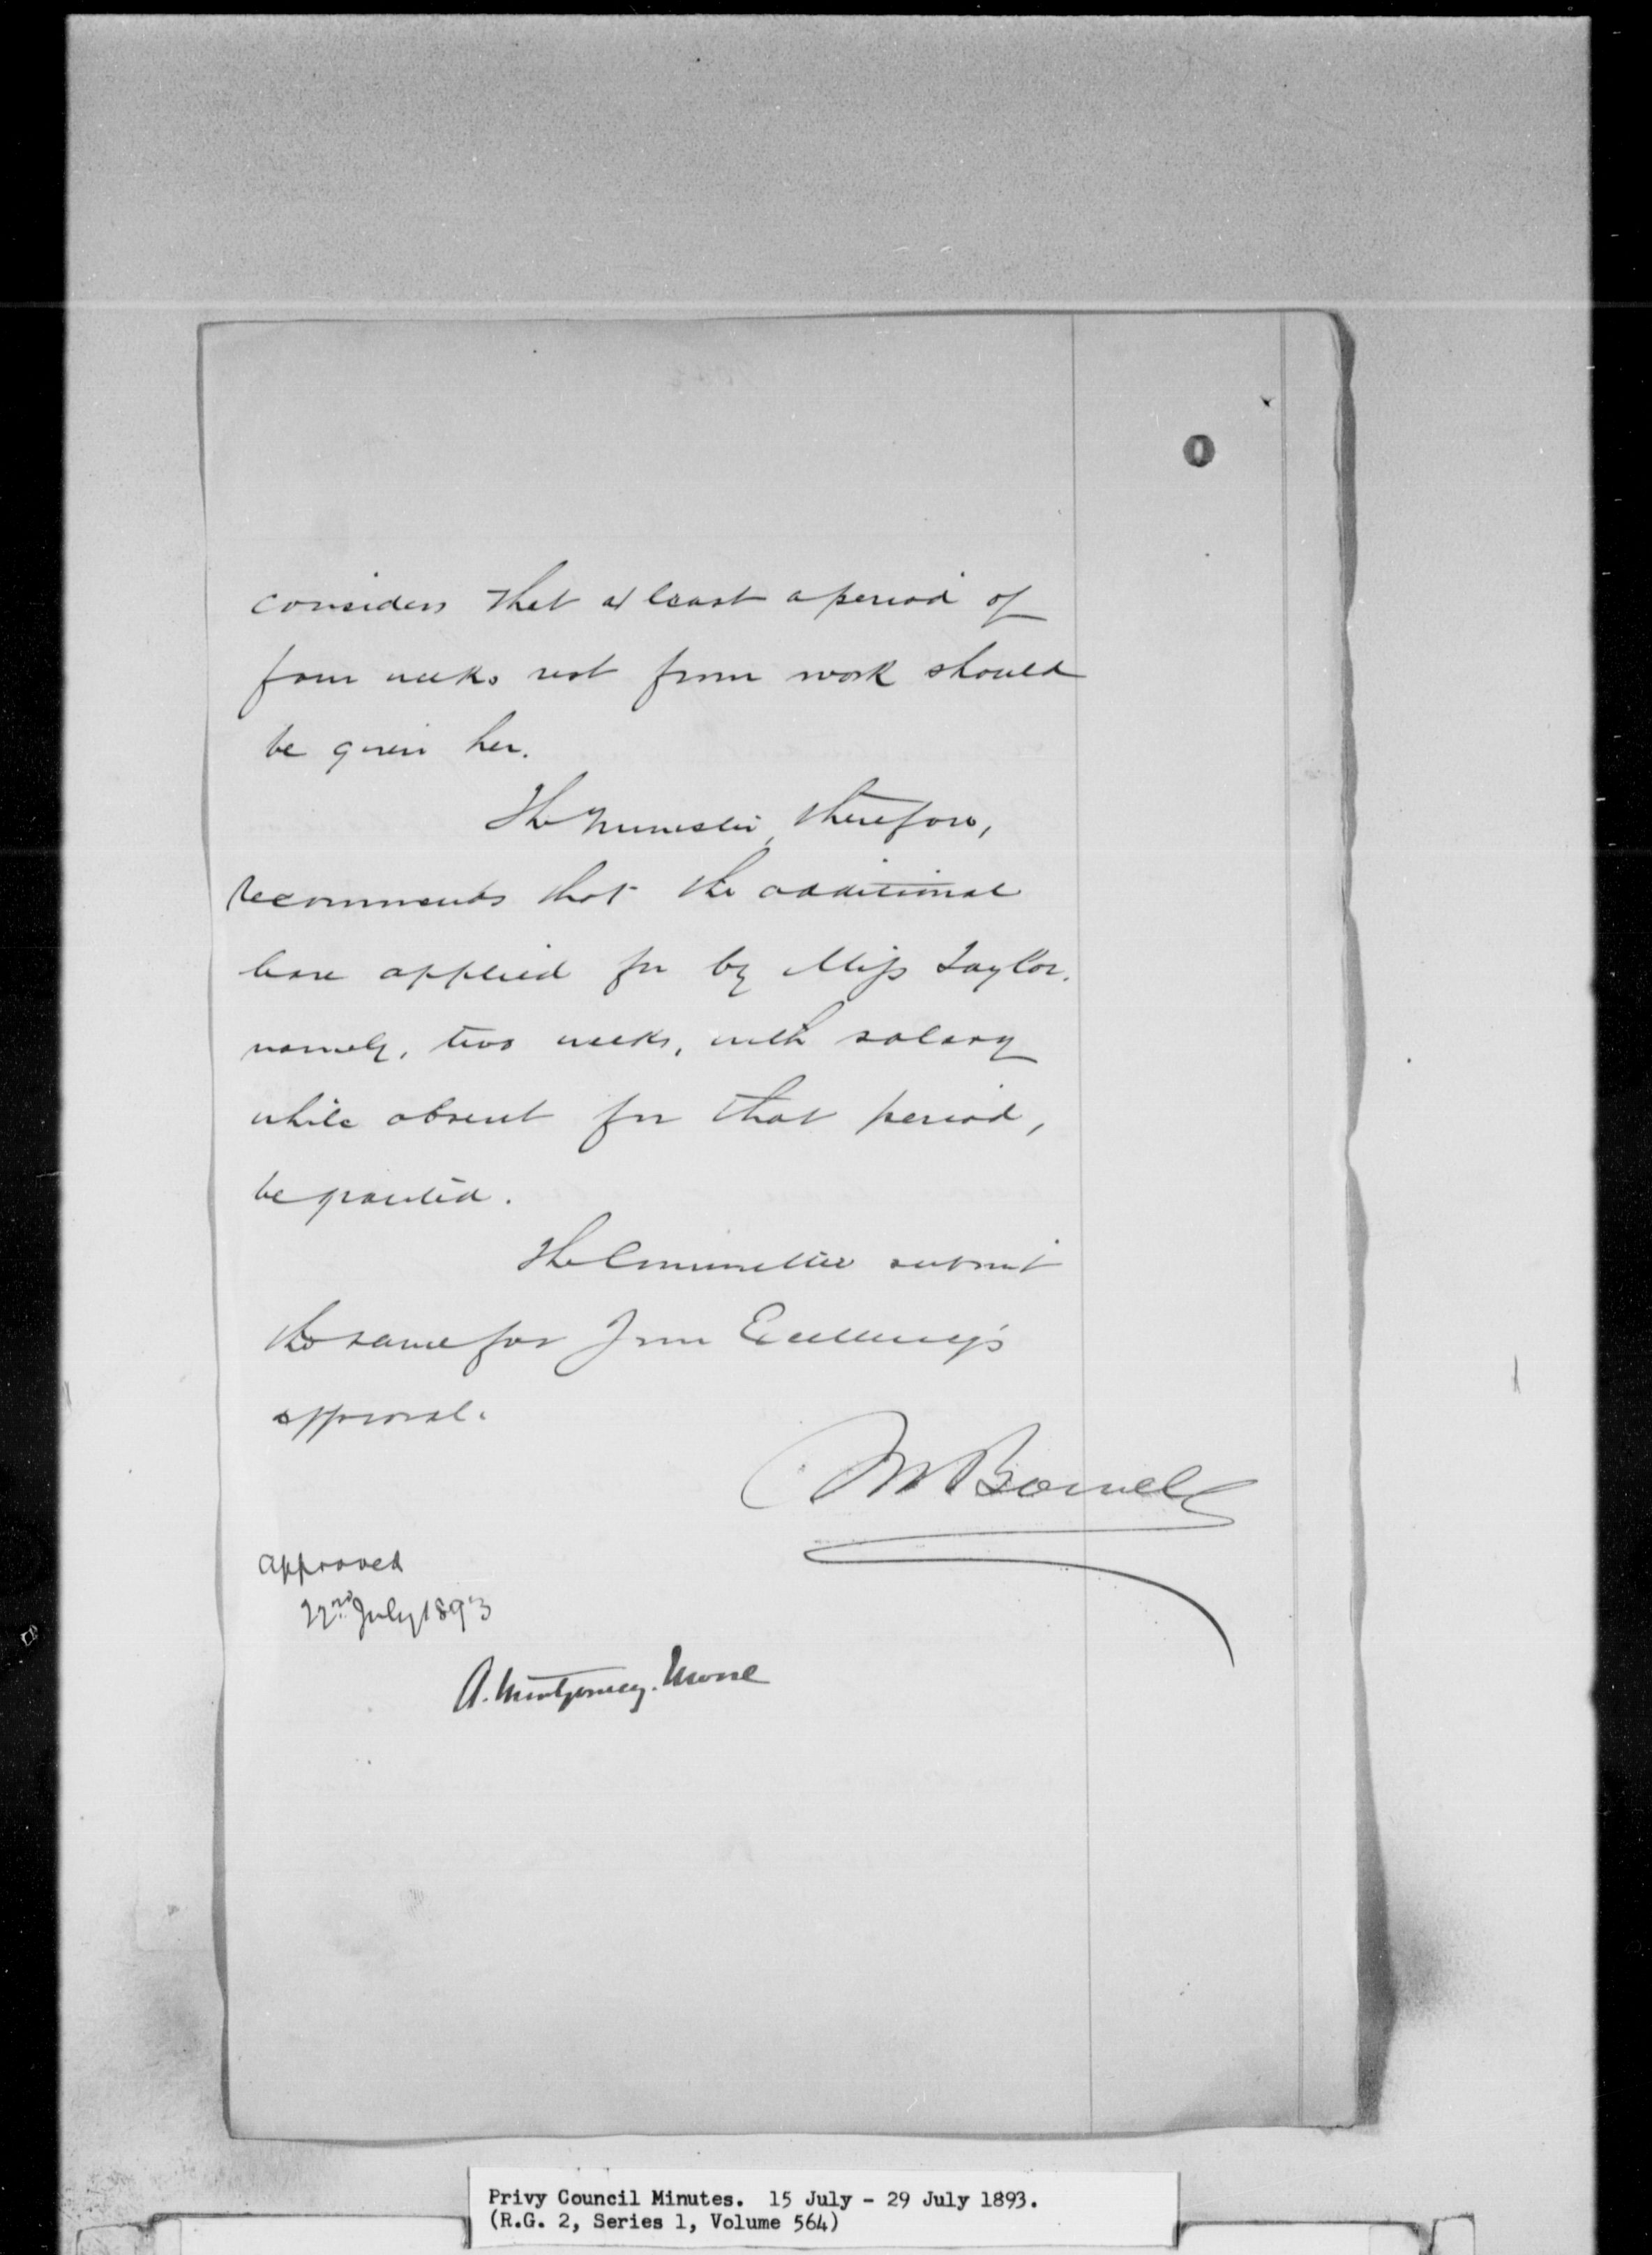 considers that at least a period of
four weeks rest from work should
be given her.
The Minister, therefore,
recommends that the additional
leave applied for by Miss Taylor,
namely, two weeks, with salary
while absent for that period,
be granted.
The Committee submit
the same for Your Excellency's
approval.
M Bowell
Approved
22nd July 1893
A. Montgomery. Moore
Privy Council Minutes. 15 July - 29 July 1893.
(R.G. 2, Series 1, Volume 564)